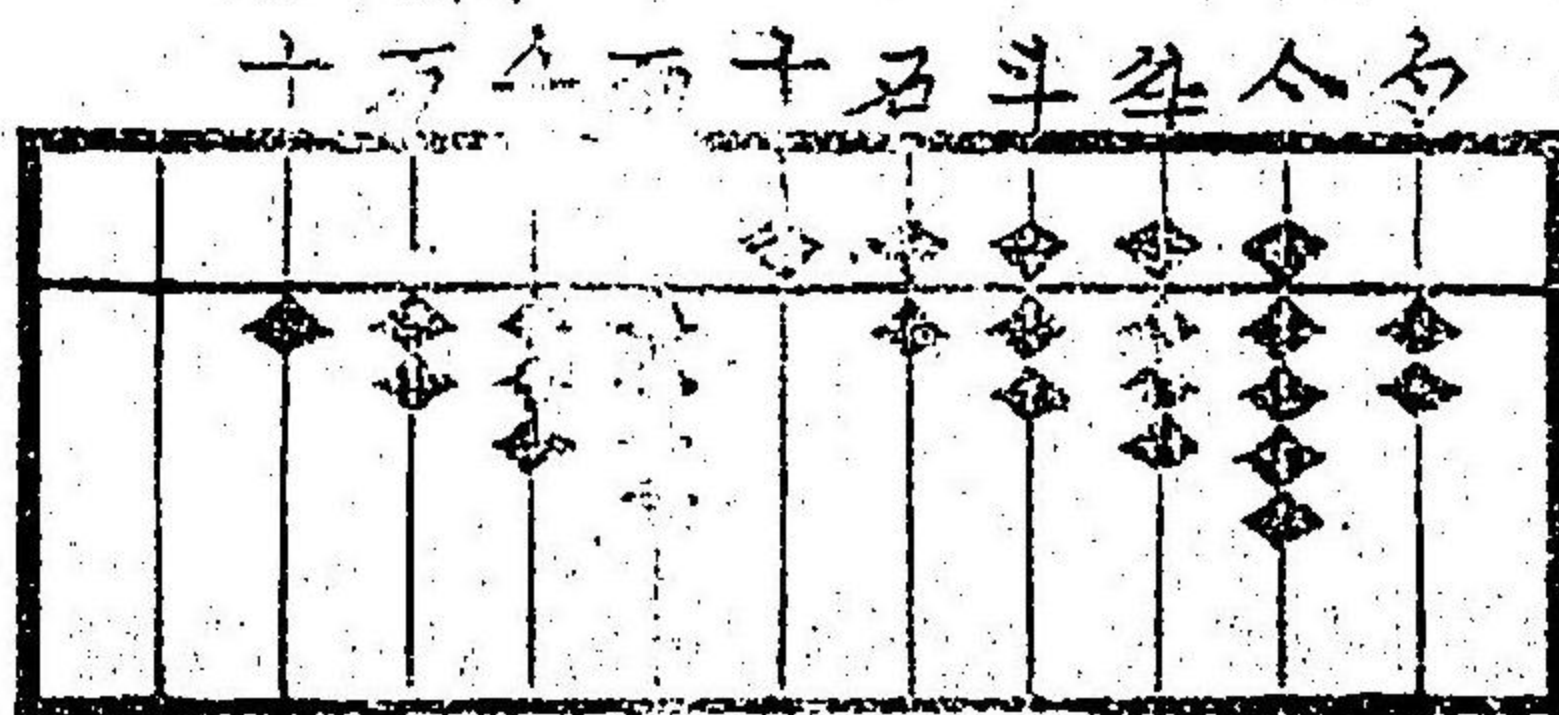 十万百十石斗舛合勺